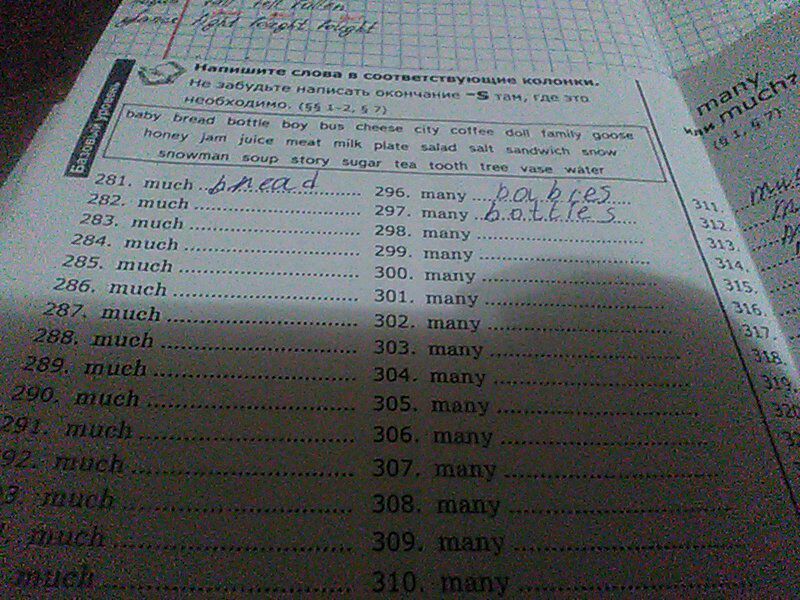 fell fallen
fight fought fought
Базовый уровень
Напишите слова в соответствующие колонки.
Не забудьте написать окончание –s там, где это
необходимо. (§§ 1–2, § 7)
baby bread bottle boy bus cheese city coffee doll family goose
honey jam juice meat milk plate salad salt sandwich snow
snowman soup story sugar tea tooth tree vase water
281. much bread
282. much
283. much
284. much
285. much
286. much
287. much
288. much
289. much
290. much
291. much
92. much
93. much
much
much
296. many babies
297. many bottles
298. many
299. many
300. many
301. many
302. many
303. many
304. many
305. many
306. many
307. many
308. many
309. many
310. many
many
или much?
(§ 1, § 7)
311.
312.
313.
314.
315.
316.
317.
318
319
320